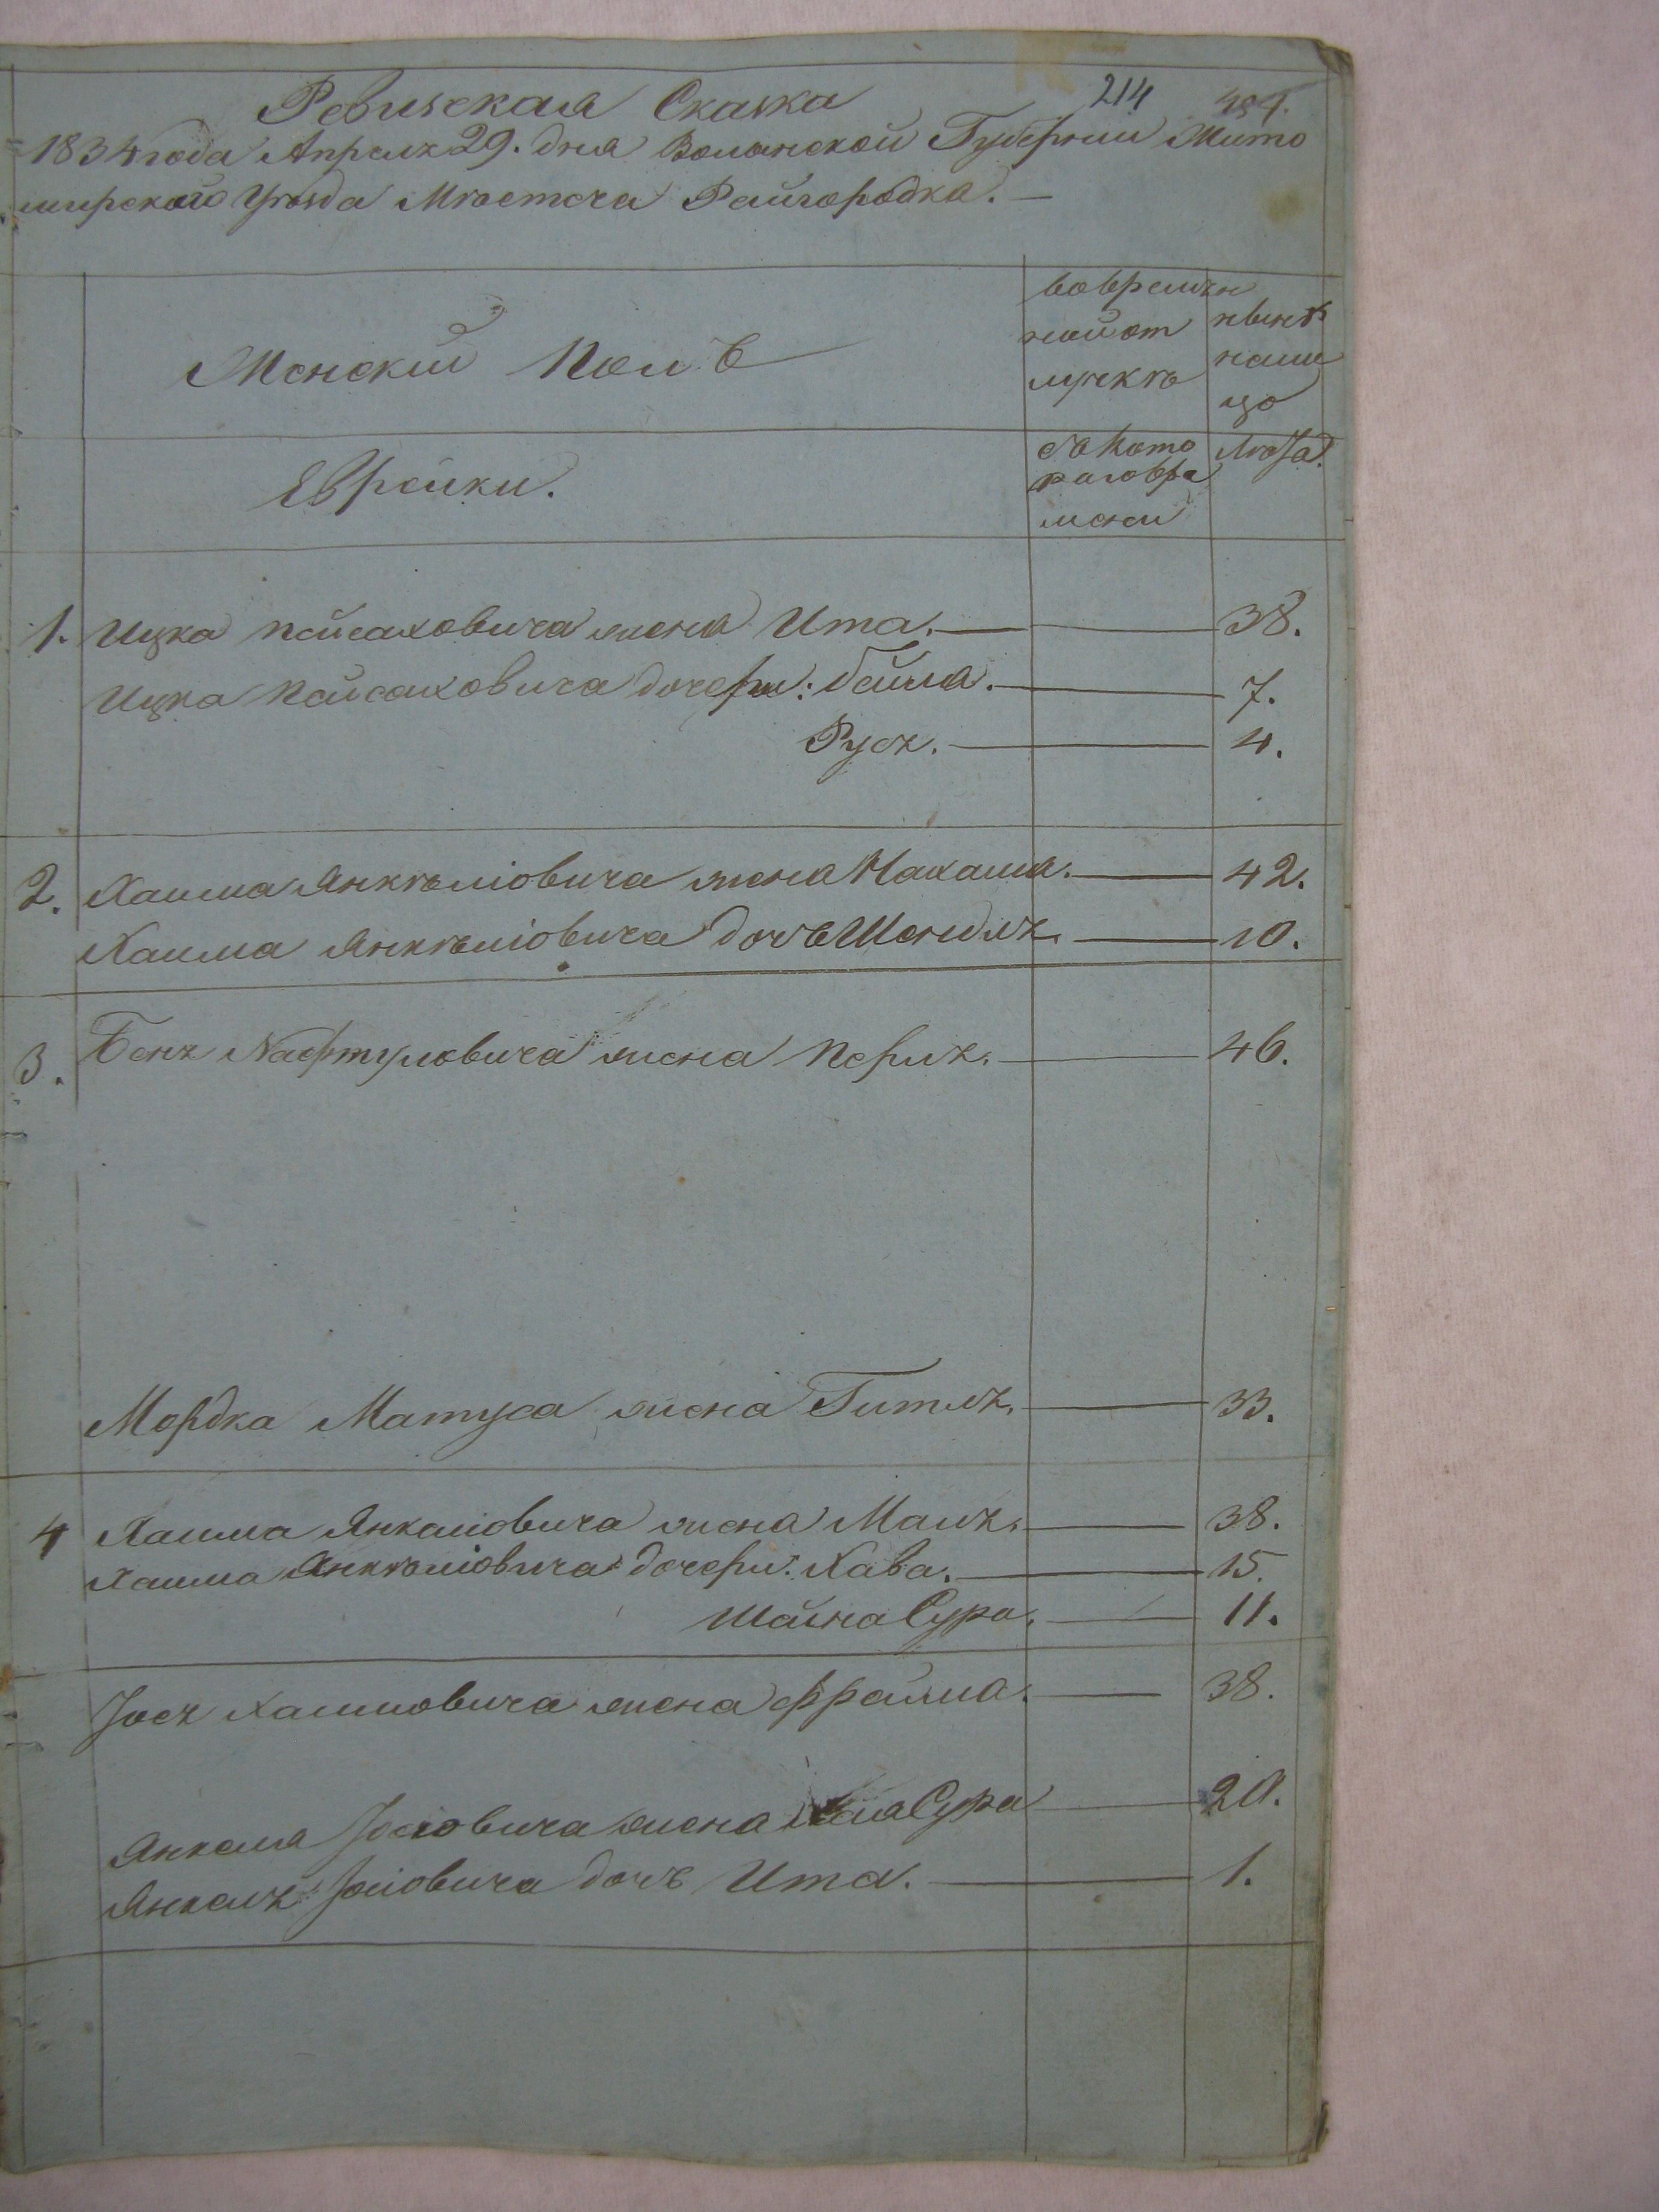 214
Ревизская Сказка
1834 года Апреля 29. дня Волынской Губернии Жито
мирского Уѣзда Мѣстеча Райгородка. —
Женский Полъ
вовремян
ной от
лучкѣ
нынѣ
нали
цо
Еврейки.
съ Кото
раговре
мени
Лѣта.
1. Ицка Пейсаховича жена Ита. — 38.
Ицка Пейсаховича дочери: Бейла. — 7.
Руся. — 4.
2. Хаима Янкѣлiовича жена Нахама. — 42.
Хаима Янкѣлiовича дочь Шендля. — 10.
3. Беня Нафтуловича жена Перля. — 46.
Мордка Матуса жена Гитля. — 33.
4 Хаима Янкелiовича жена Маля. — 38.
Хаима Янкѣлiовича дочери: Хава. — 15.
Шейна Сура. — 11.
Iося Хаимовича жена Фрейма. — 38.
Янкеля Iосiовича жена Сура — 20.
Янкеля Iосiовича дочь Ита. — 1.